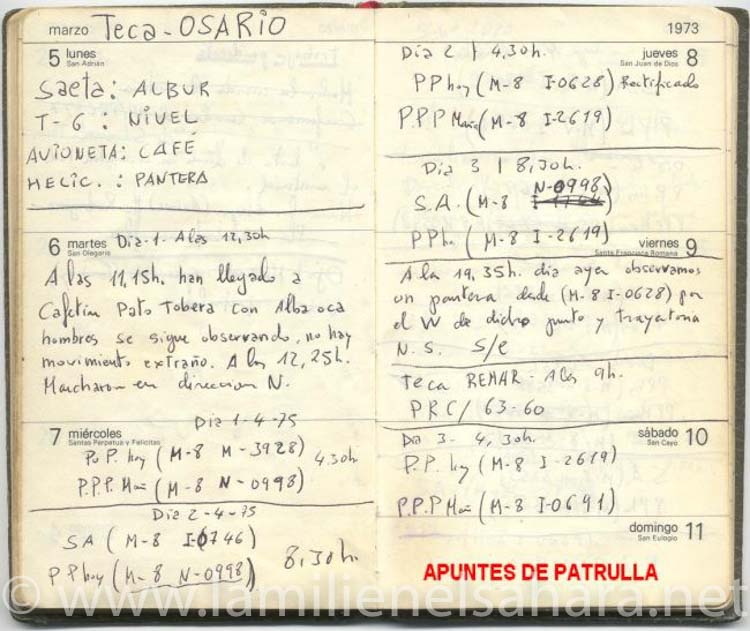 marzo Teca-OSARIO
5 lunes
San Adrián
Saeta: ALBUR
T-6 : NIVEL
AVIONETA: CAFÉ
HELIC. : PANTERA
6 martes Dia-1- A las 12,30h
San Olegario
A las 11,15h. han llegado a
Cafetin Pato Tobera con Alba oca
hombres se sigue observando, no hay
movimiento extraño. A las 12,25h.
Marcharon en direccion N.
Dia 1-4-75
7 miércoles
Santas Perpetua y Felicitas
P.P. hoy (M-8 M-3928) 4,30h
P.P.P. Mañ (M-8 N-0998)
Dia 2-4-75
SA (M-8 I-0746)
PP hoy (M-8 N-0998) 8,30h.
1973
jueves 8
San Juan de Dios
Dia 2 4,30h.
PP hoy (M-8 I-0628) Rectificado
P.P.P Maña (M-8 I-2619)
Dia 3 8,30h.
N-0998
S.A. (M-8
PPh. (M-8 I-2619)
viernes 9
Santa Francisca Romana
A la 19,35h. dia ayer observamos
un pantera desde (M-8 I-0628) por
el W de dicho punto y trayectoria
N.S. S/c
Teca REMAR- A las 9h.
PRC/ 63-60
Dia 3- 4,30h.
sábado 10
San Cayo
P.P. hoy (M-8 I-2619)
P.P.P Mañ (M-8 I-0641)
domingo 11
San Eulogio
APUNTES DE PATRULLA
© www.lamilienelsahara.net